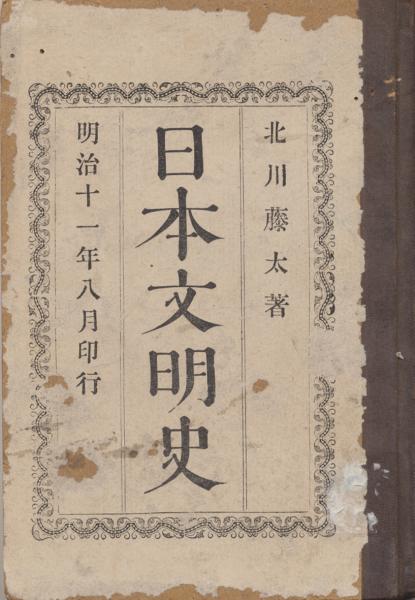 北川藤太著
日本文明史
明治十一年八月印行